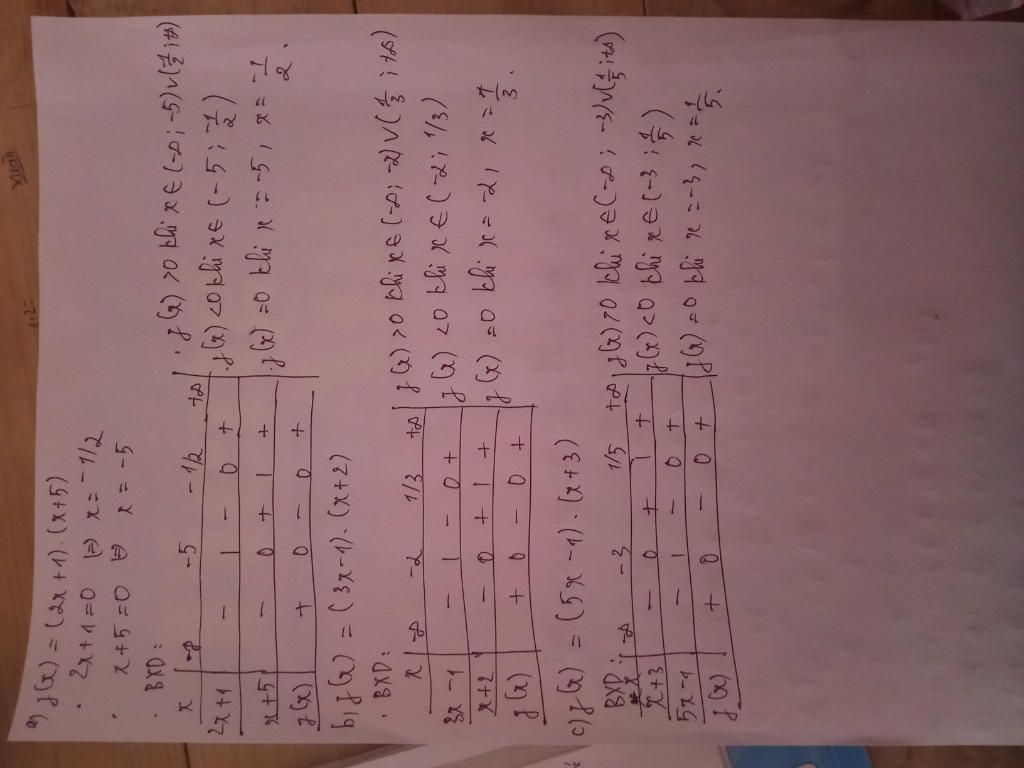 a) f(x) = (2x+1).(x+5)
. 2x+1=0 (=) x = -1/2
. x+5=0 (=) x = -5
. BXD:
x -∞ -5 -1/2 +∞
2x+1 - | - 0 +
x+5 - 0 + | +
f(x) + 0 - 0 +
. f(x) >0 khi x ∈ (-∞; -5) ∨ (1/2; +∞)
. f(x) <0 khi x ∈ (-5; -1/2)
. f(x) =0 khi x = -5, x = -1/2.
b, f(x) = (3x-1).(x+2)
. BXD:
x -∞ -2 1/3 +∞
3x-1 - | - 0 +
x+2 - 0 + | +
f(x) + 0 - 0 +
f(x) >0 khi x ∈ (-∞; -2) ∨ (1/3; +∞)
f(x) <0 khi x ∈ (-2; 1/3)
f(x) =0 khi x = -2, x = 1/3.
c) f(x) = (5x-1).(x+3)
BXD:
x -∞ -3 1/5 +∞
x+3 - 0 + | +
5x-1 - | - 0 +
f(x) + 0 - 0 +
f(x) >0 khi x ∈ (-∞; -3) ∨ (1/5; +∞)
f(x) <0 khi x ∈ (-3; 1/5)
f(x) =0 khi x = -3, x = 1/5.